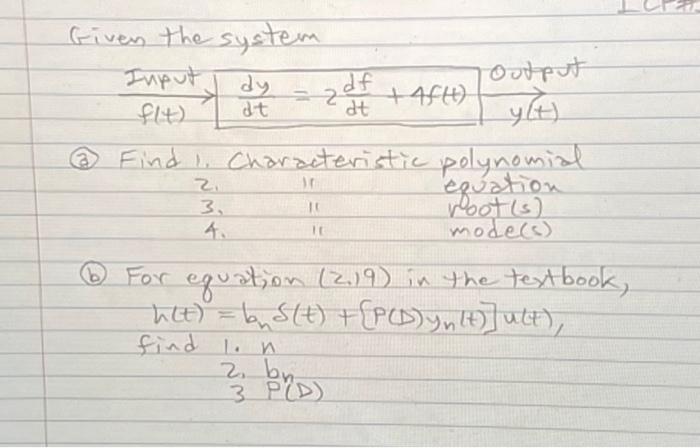 Given the system
Input
f(t)
dy/dt = 2 df/dt + 4f(t)
Output
y(t)
ⓐ Find 1. Characteristic polynomial
2. " equation
3. " root(s)
4. " mode(s)
ⓑ For equation (2.19) in the textbook,
h(t) = bₙδ(t) + [P(D)yₙ(t)]u(t),
find 1. n
2. bₙ
3 P(D)